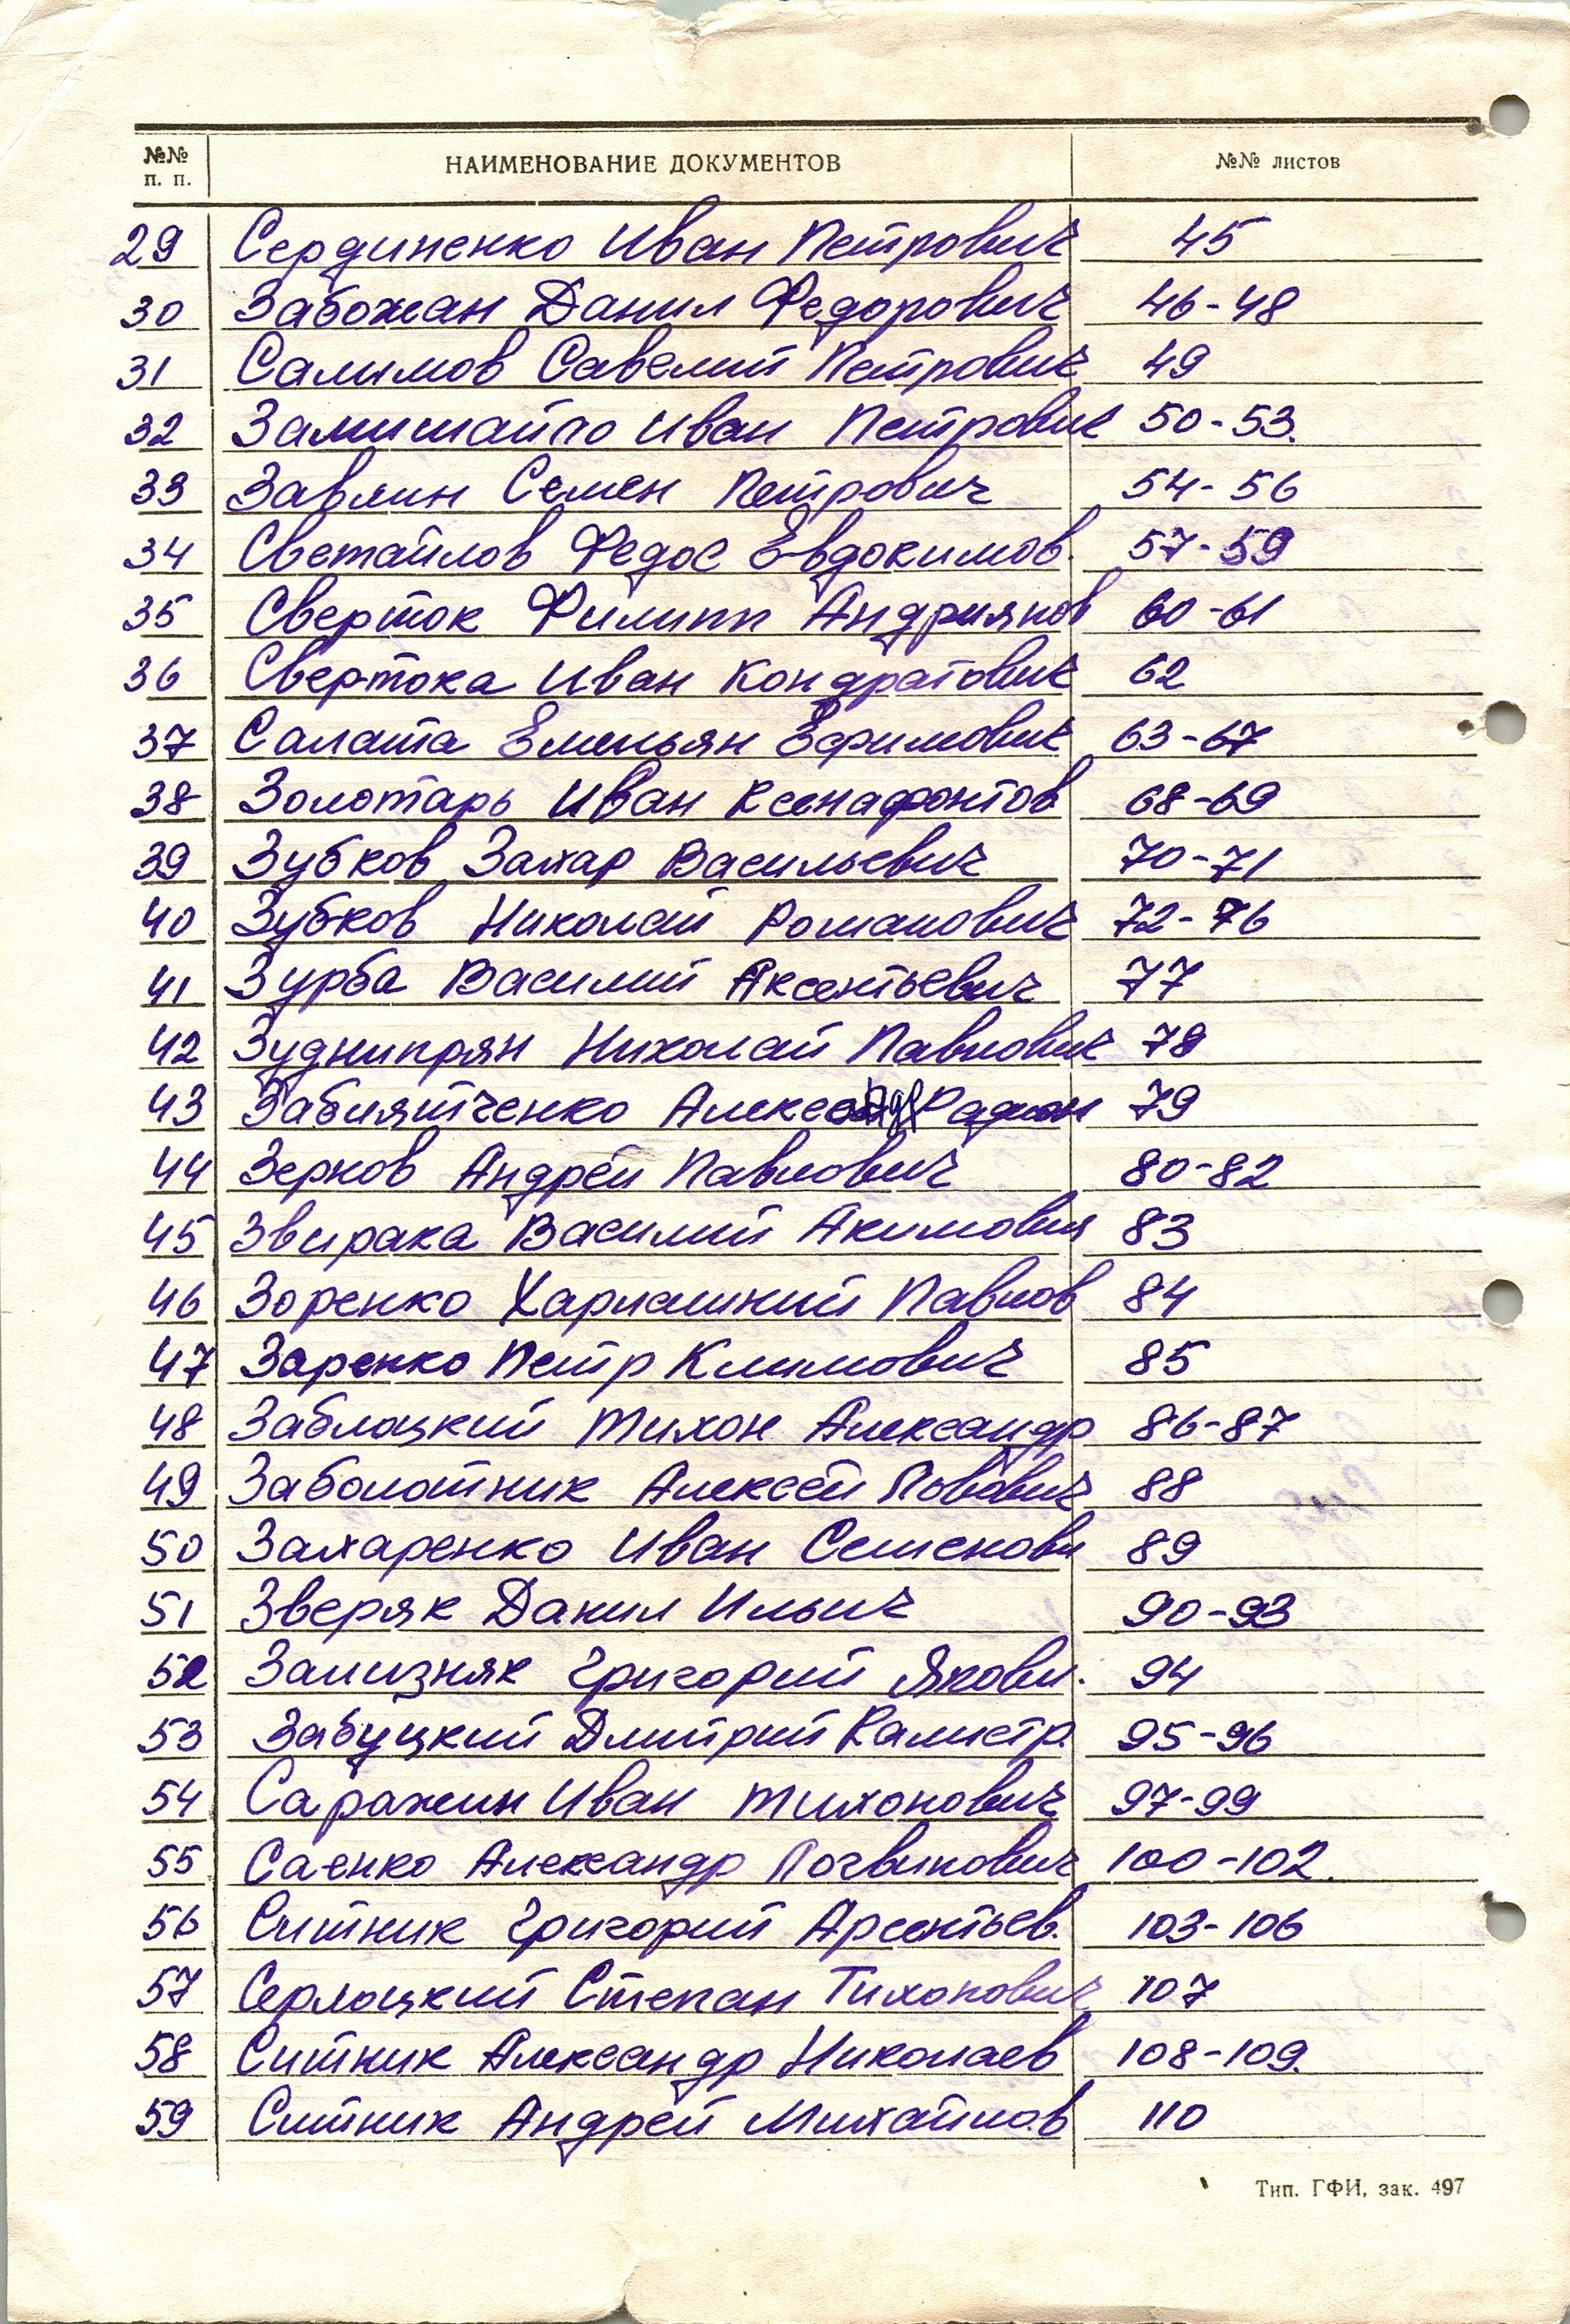 №№ п. п. НАИМЕНОВАНИЕ ДОКУМЕНТОВ №№ листов
29 Сердиненко Иван Петрович 45
30 Забожан Данил Федорович 46-48
31 Салимов Савелий Петрович 49
32 Замишайло Иван Петрович 50-53.
33 Завлин Семен Петрович 54-56
34 Светайлов Федос Евдокимов. 57-59
35 Сверток Филипп Андриянов 60-61
36 Свертока Иван Кондратович 62
37 Салата Емельян Ефимович 63-67
38 Золотарь Иван Ксенафонтов 68-69
39 Зубков Захар Васильевич 70-71
40 Зубков Николай Романович 72-76
41 Зурба Василий Аксентьевич 77
42 Зуднипрян Николай Павлович 78
43 Забиятченко Радион 79
44 Зернов Андрей Павлович 80-82
45 Звирака Василий Акимович 83
46 Зоренко Харлампий Павлов 84
47 Заренко Петр Климович 85
48 Заблоцкий Тихон Александр 86-87
49 Заболотник Алексей Львович 88
50 Захаренко Иван Семенови 89
51 Зверяк Данил Ильич 90-93
52 Зализняк Григорий Якови. 94
53 Забуцкий Дмитрий Калистр. 95-96
54 Саражин Иван Тихонович 97-99
55 Саенко Александр Логвинович 100-102.
56 Ситник Григорий Арсентьев. 103-106
57 Серлоцкий Степан Тихонович 107
58 Ситник Александр Николаев 108-109.
59 Ситник Андрей Михайлов 110
Тип. ГФИ, зак. 497